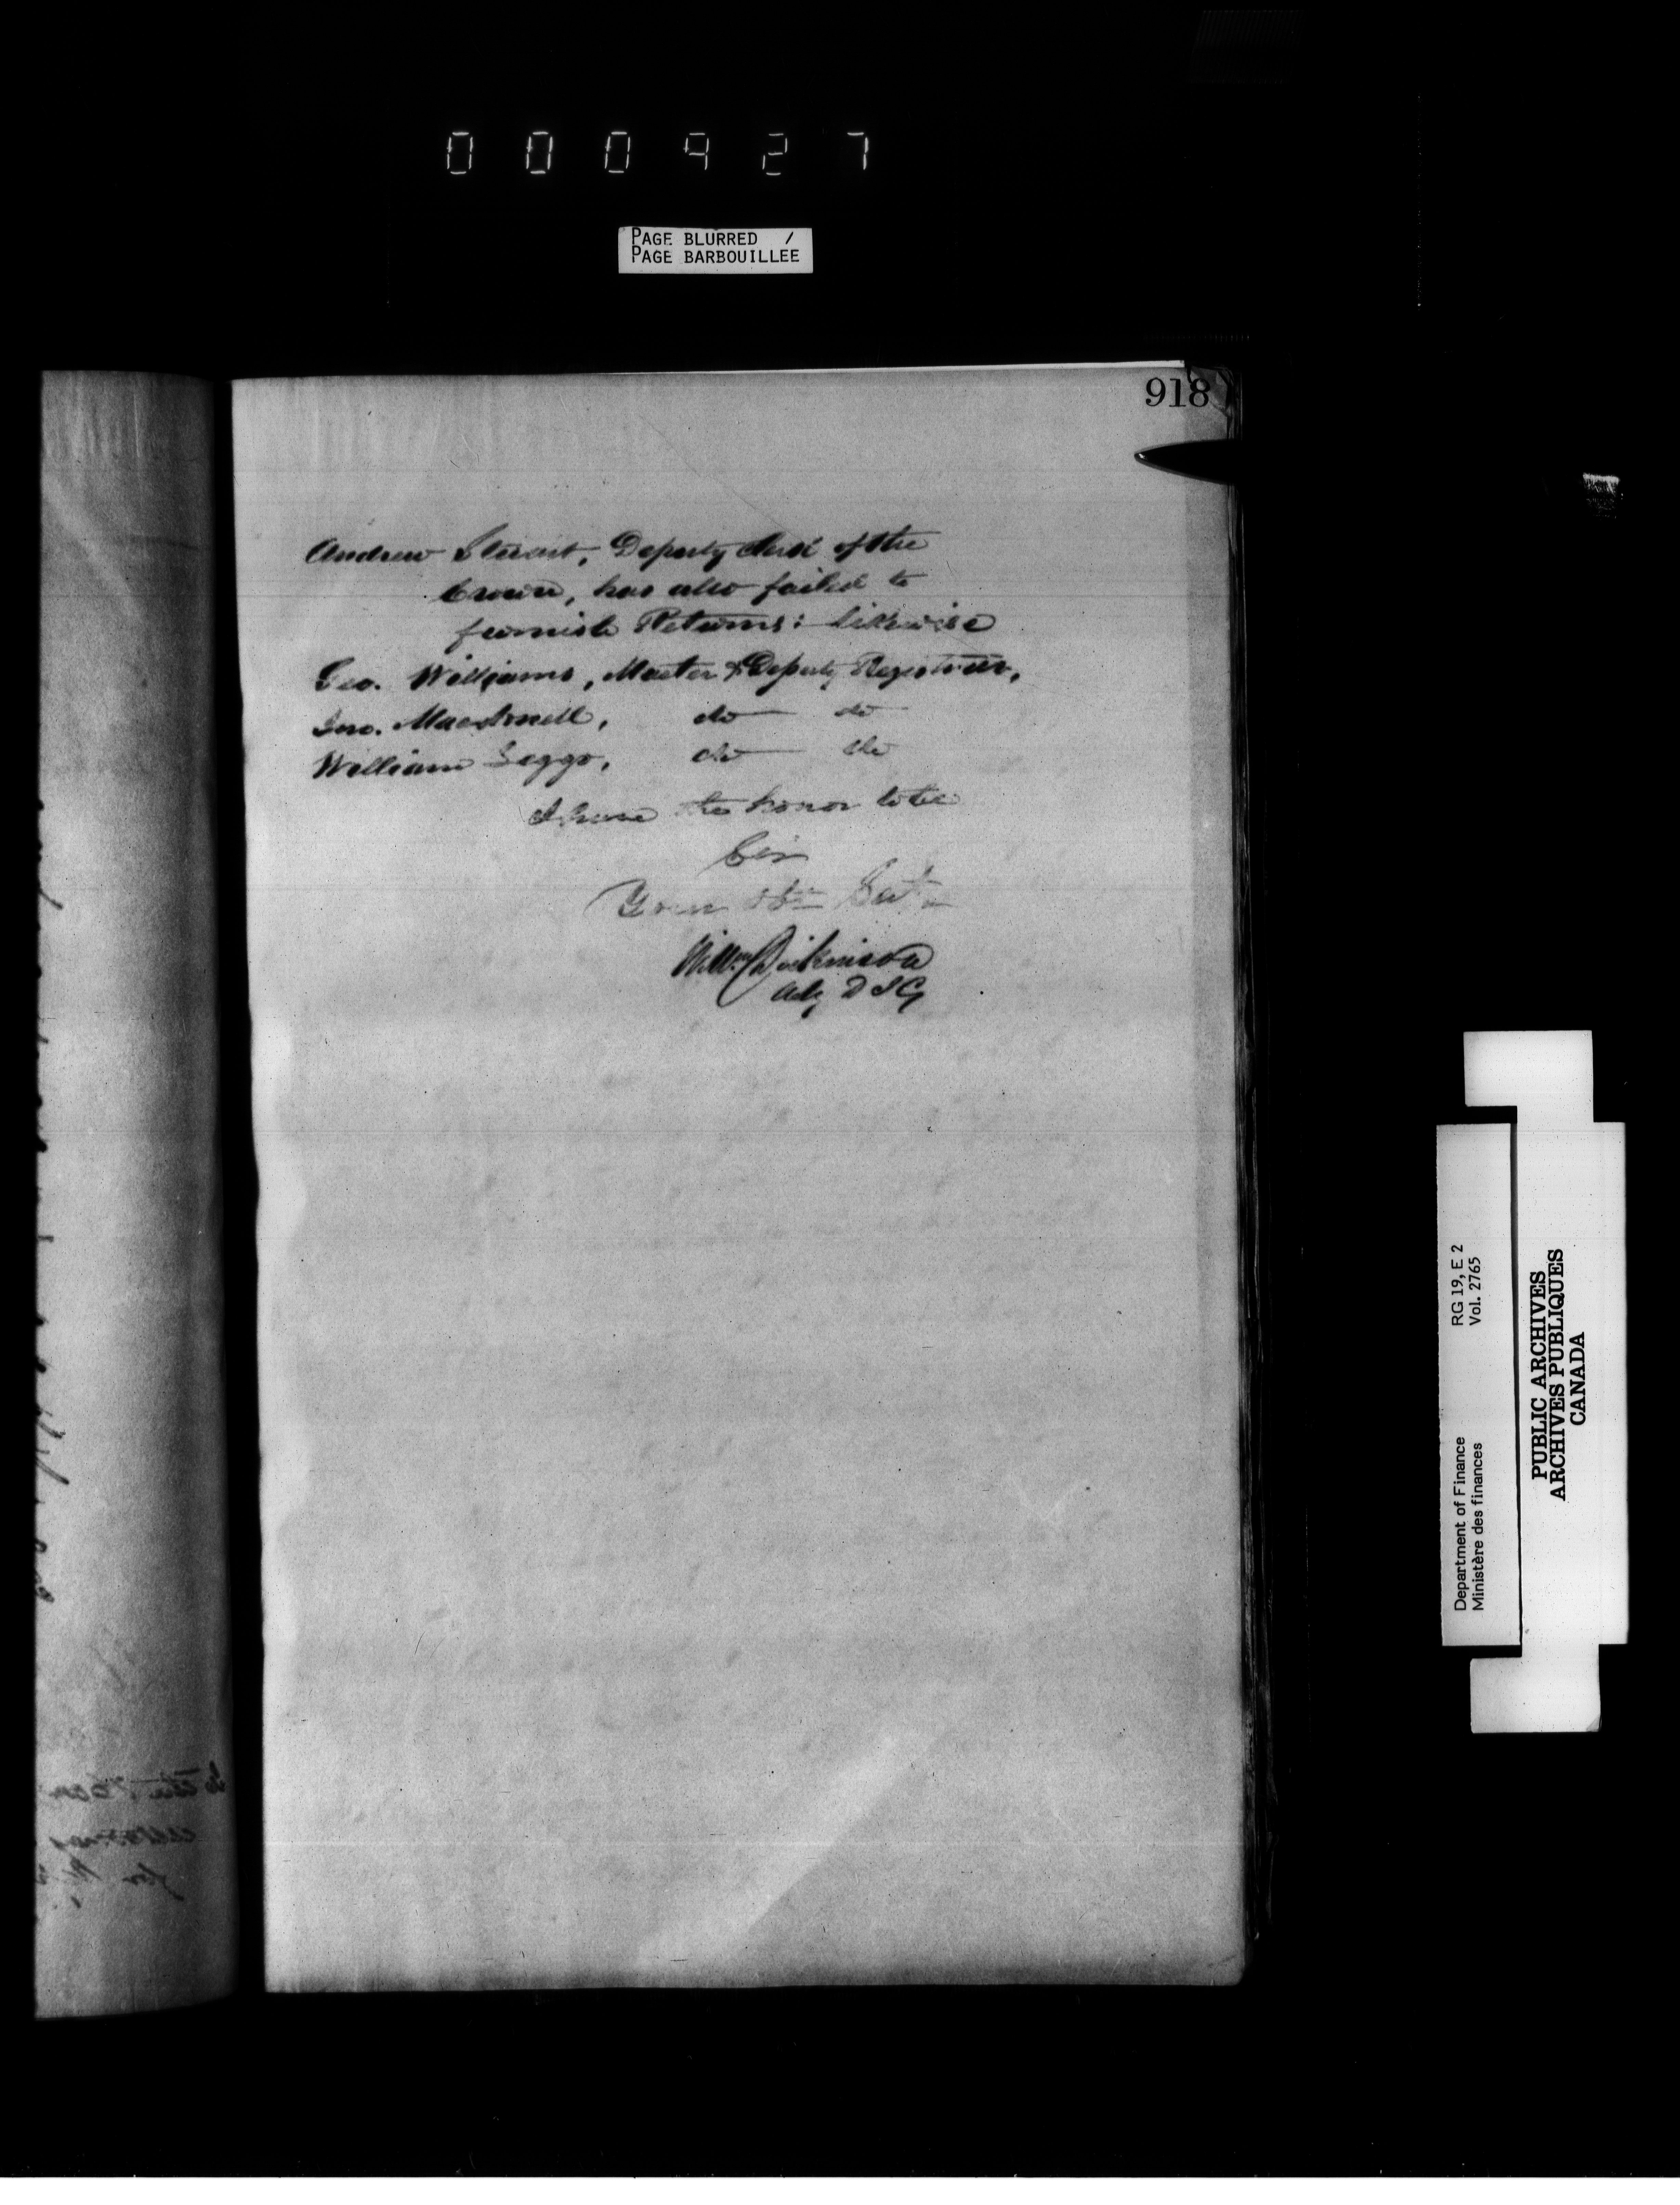 000927
PAGE BLURRED /
PAGE BARBOUILLEE
918
Andrew Stuart, Deputy Clerk of the
Crown, has also failed to
furnish Returns: likewise
Geo. Williams, Master & Deputy Registrar,
Jno. Macdonell, do do
William Seggo, do do
I have the honor to be
Sir
Your Obt Sert
Willm Dickinson
Actg D I G
Department of Finance RG 19, E 2
Ministère des finances Vol. 2765
PUBLIC ARCHIVES
ARCHIVES PUBLIQUES
CANADA